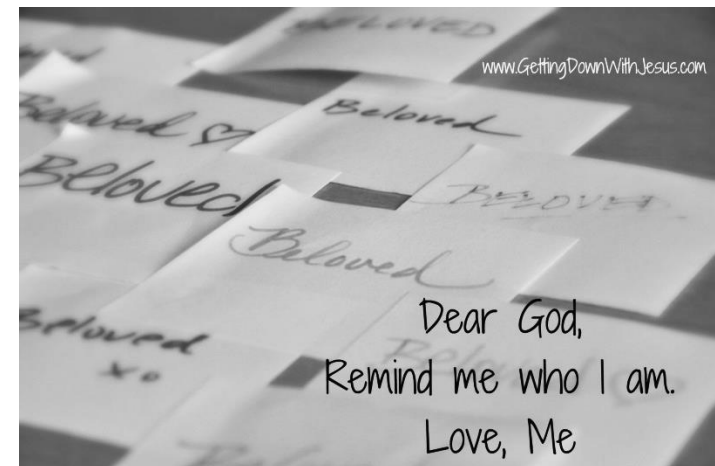 BELOVED
www.GettingDownWithJesus.com
Beloved
Beloved ♡
Beloved
BELOVED
Beloved
Dear God,
Beloved
Remind me who I am.
xo
Love, Me